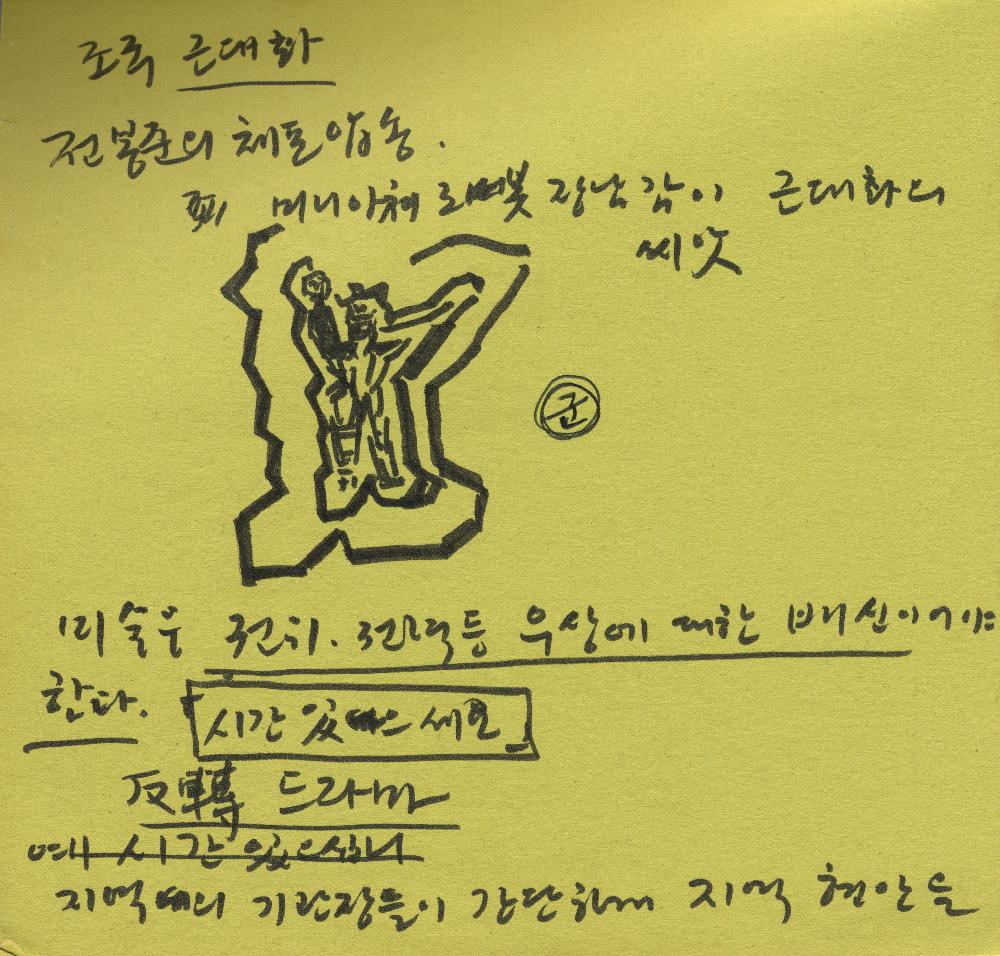 조국 근대화
전봉준의 체포 압송.
미니아쳐 로버봇 장난감이 근대화의
씨앗
군
미술은 권위. 권력등 우상에 대한 배신이어야
한다.
시간 있으세요
反轉 드라마
시간 있으세요
지역의 기관장들이 간단하게 지역 현안을